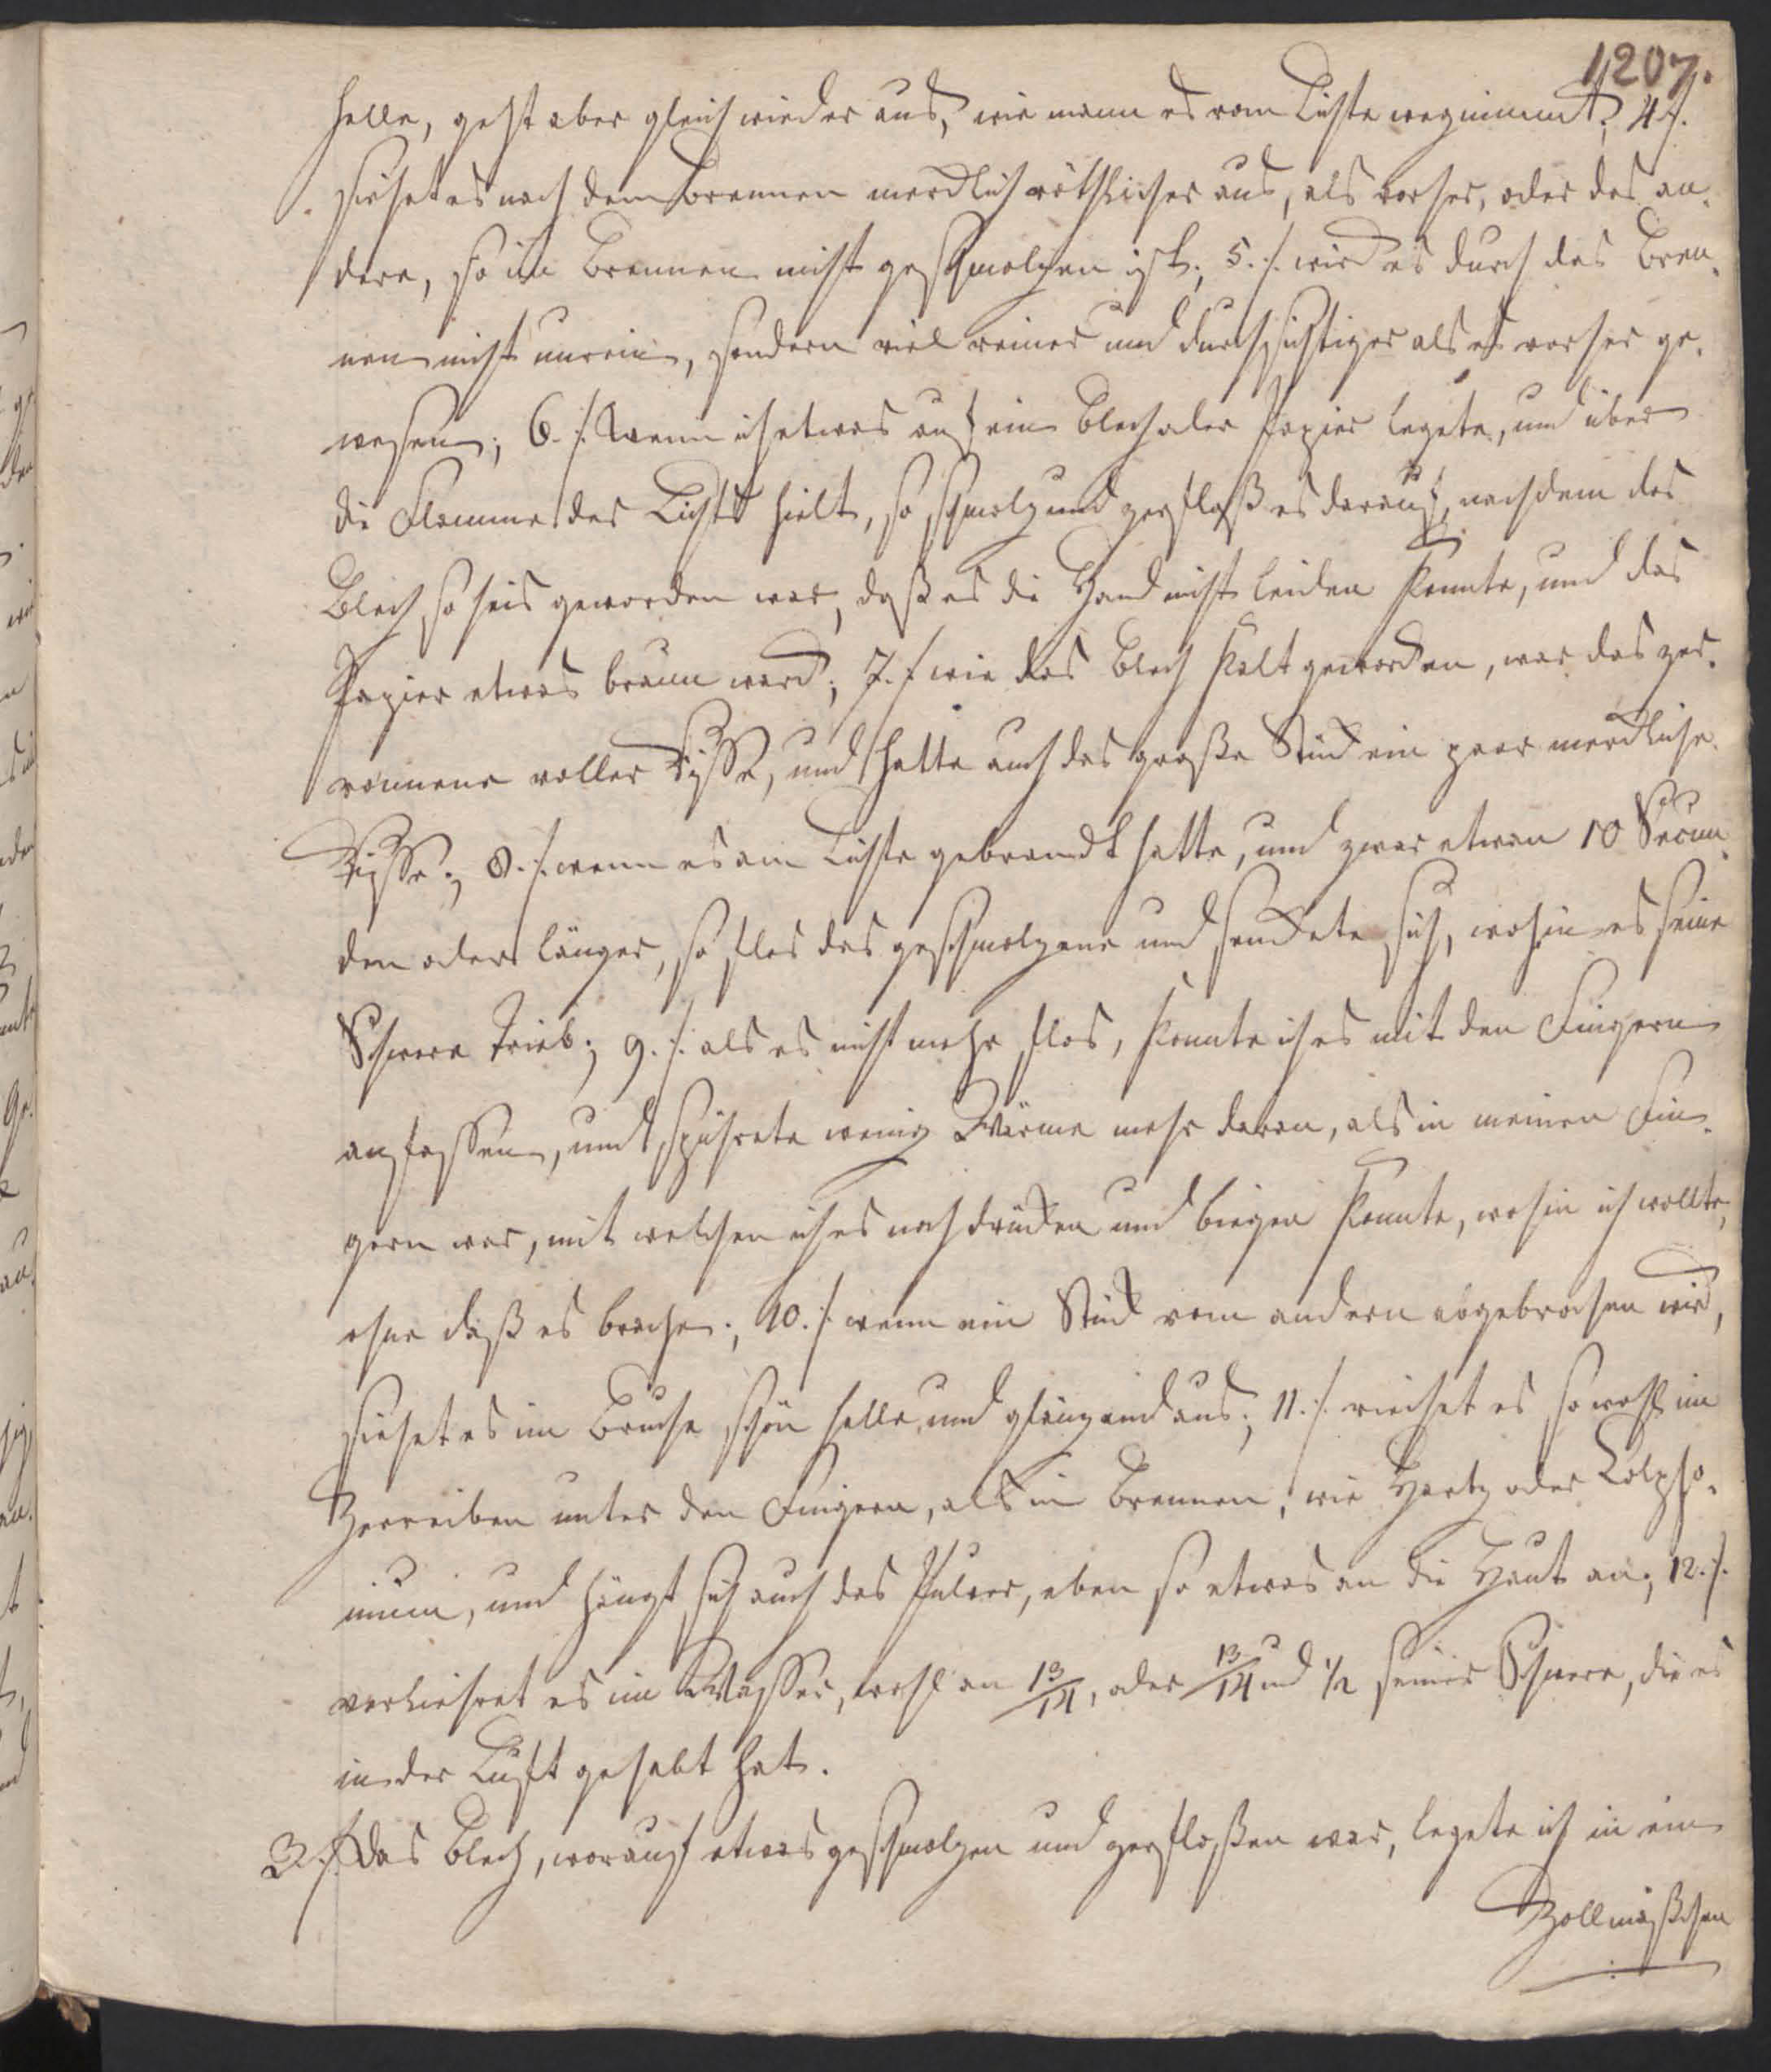 1207.
helle, geht aber gleich wieder aus, wie mann es vom Lichte wegnimmt; 4./.
siehet es nach dem Brennen mercklich röthlicher aus, als vorher, oder das an-
dere, so im Brennen nicht geschmolzen ist; 5./. wird es durch das Bren-
nen nicht unrein, sondern viel reiner und durchsichtiger als es vorher ge-
wesen; 6./. Wenn ich etwas auf ein Blech oder Papier legete, und über
die Flamme des Lichts hielt, so schmolz und zerfloß es darauf, nachdem das
Blech so heis geworden war, daß es die Hand nicht leiden konnte, und das
Papier etwas braun ward; 7./. wie das Blech kalt geworden, war das zer-
ronnene voller Risse, und hatte auch das große Stück ein paar merckliche
Risse; 8./. wenn es am Lichte gebrandt hatte, und zwar etwan 10 Secun-
den oder länger, so flos das geschmolzene und senckete sich, wohin es seine
Schwere trieb; 9./. als es nicht mehr flos, konnte ich es mit den Fingern
anfassen, und spührete wenig Wärme mehr daran, als in meinen Fin-
gern war, mit welchen ich es noch drücken und biegen konnte, wohin ich wollte,
ohne daß es brache; 10./. wenn ein Stück vom andern abgebrochen wird,
siehet es im Bruche schön helle und gläntzend aus; 11./. riechet es sowohl im
Zerreiben unter den Fingern, als im Brennen, wie Hartz oder Colpho-
nium, und hängt sich auch das Pulver, eben so etwas an die Haut an; 12./.
verliehret es im Wasser, wohl an 13/14, oder 13/14 und 1/2 seiner Schwere, die es
in der Luft gehabt hat.
3./. Das Blech, worauf etwas geschmolzen und zerfloßen war, legete ich in ein